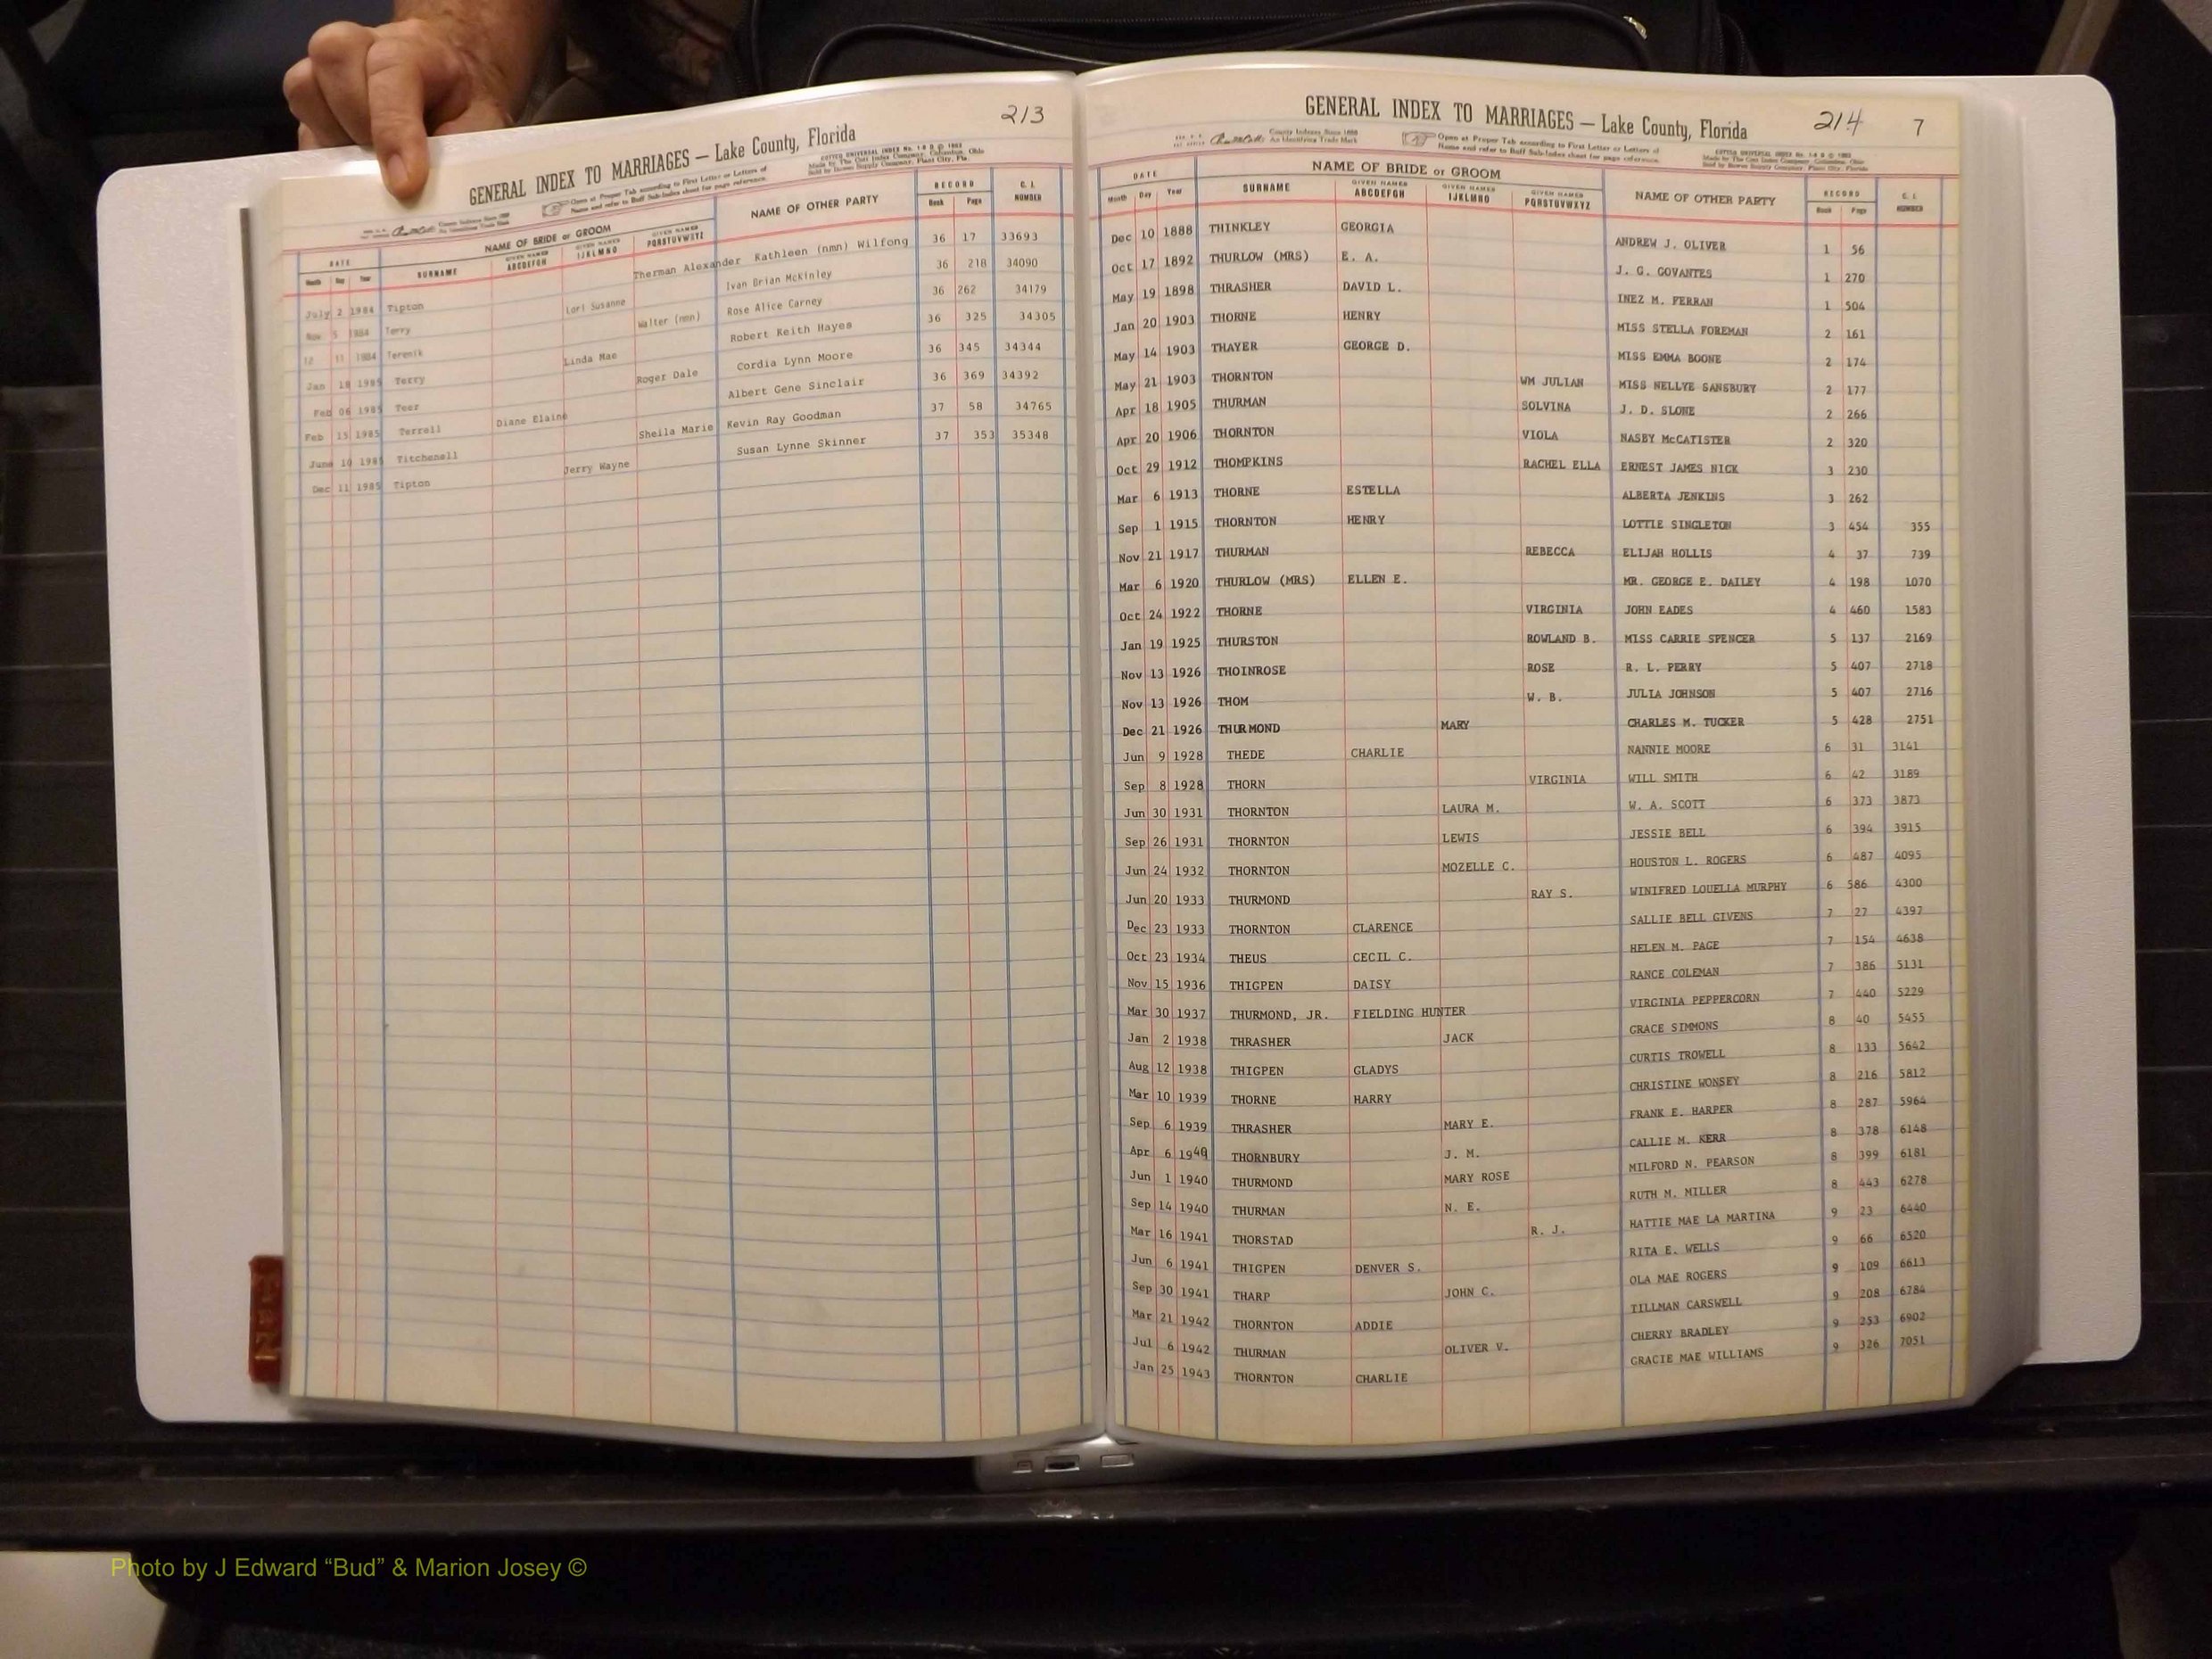 213
GENERAL INDEX TO MARRIAGES — Lake County, Florida
Open at Proper Tab according to First Letter or Letters of
Name and refer to Buff Sub-Index sheet for page reference.
DATE NAME OF BRIDE or GROOM NAME OF OTHER PARTY RECORD C. I. NUMBER
Month Day Year SURNAME GIVEN NAMES ABCDEFGH GIVEN NAMES IJKLMNO GIVEN NAMES PQRSTUVWXYZ Book Page
July 2 1984 Tipton Therman Alexander Kathleen (nmn) Wilfong 36 17 33693
Nov 5 1984 Terry Lori Susanne Ivan Brian McKinley 36 218 34090
12 11 1984 Teremik Walter (nmn) Rose Alice Carney 36 262 34179
Jan 18 1985 Terry Linda Mae Robert Keith Hayes 36 325 34305
Feb 06 1985 Teer Roger Dale Cordia Lynn Moore 36 345 34344
Feb 15 1985 Terrell Diane Elaine Albert Gene Sinclair 36 369 34392
June 10 1985 Titchenell Sheila Marie Kevin Ray Goodman 37 58 34765
Dec 11 1985 Tipton Jerry Wayne Susan Lynne Skinner 37 353 35348
214 7
GENERAL INDEX TO MARRIAGES — Lake County, Florida
Open at Proper Tab according to First Letter or Letters of
Name and refer to Buff Sub-Index sheet for page reference.
DATE NAME OF BRIDE or GROOM NAME OF OTHER PARTY RECORD C. I. NUMBER
Month Day Year SURNAME GIVEN NAMES ABCDEFGH GIVEN NAMES IJKLMNO GIVEN NAMES PQRSTUVWXYZ Book Page
Dec 10 1888 THINKLEY GEORGIA ANDREW J. OLIVER 1 56
Oct 17 1892 THURLOW (MRS) E. A. J. G. GOVANTES 1 270
May 19 1898 THRASHER DAVID L. INEZ M. FERRAN 1 504
Jan 20 1903 THORNE HENRY MISS STELLA FOREMAN 2 161
May 14 1903 THAYER GEORGE D. MISS EMMA BOONE 2 174
May 21 1903 THORNTON WM JULIAN MISS NELLYE SANSBURY 2 177
Apr 18 1905 THURMAN SOLVINA J. D. SLONE 2 266
Apr 20 1906 THORNTON VIOLA NASBY McCATISTER 2 320
Oct 29 1912 THOMPKINS RACHEL ELLA ERNEST JAMES NICK 3 230
Mar 6 1913 THORNE ESTELLA ALBERTA JENKINS 3 262
Sep 1 1915 THORNTON HENRY LOTTIE SINGLETON 3 454 355
Nov 21 1917 THURMAN REBECCA ELIJAH HOLLIS 4 37 739
Mar 6 1920 THURLOW (MRS) ELLEN E. MR. GEORGE E. DAILEY 4 198 1070
Oct 24 1922 THORNE VIRGINIA JOHN EADES 4 460 1583
Jan 19 1925 THURSTON ROWLAND B. MISS CARRIE SPENCER 5 137 2169
Nov 13 1926 THOINROSE ROSE R. L. PERRY 5 407 2718
Nov 13 1926 THOM W. B. JULIA JOHNSON 5 407 2716
Dec 21 1926 THURMOND MARY CHARLES M. TUCKER 5 428 2751
Jun 9 1928 THEDE CHARLIE NANNIE MOORE 6 31 3141
Sep 8 1928 THORN VIRGINIA WILL SMITH 6 42 3189
Jun 30 1931 THORNTON LAURA M. W. A. SCOTT 6 373 3873
Sep 26 1931 THORNTON LEWIS JESSIE BELL 6 394 3915
Jun 24 1932 THORNTON MOZELLE C. HOUSTON L. ROGERS 6 487 4095
Jun 20 1933 THURMOND RAY S. WINIFRED LOUELLA MURPHY 6 586 4300
Dec 23 1933 THORNTON CLARENCE SALLIE BELL GIVENS 7 27 4397
Oct 23 1934 THEUS CECIL C. HELEN M. PAGE 7 154 4638
Nov 15 1936 THIGPEN DAISY RANCE COLEMAN 7 386 5131
Mar 30 1937 THURMOND, JR. FIELDING HUNTER VIRGINIA PEPPERCORN 7 440 5229
Jan 2 1938 THRASHER JACK GRACE SIMMONS 8 40 5455
Aug 12 1938 THIGPEN GLADYS CURTIS TROWELL 8 133 5642
Mar 10 1939 THORNE HARRY CHRISTINE WONSEY 8 216 5812
Sep 6 1939 THRASHER MARY E. FRANK E. HARPER 8 287 5964
Apr 6 1940 THORNBURY J. M. CALLIE M. KERR 8 378 6148
Jun 1 1940 THURMOND MARY ROSE MILFORD N. PEARSON 8 399 6181
Sep 14 1940 THURMAN N. E. RUTH M. MILLER 8 443 6278
Mar 16 1941 THORSTAD R. J. HATTIE MAE LA MARTINA 9 23 6440
Jun 6 1941 THIGPEN DENVER S. RITA E. WELLS 9 66 6520
Sep 30 1941 THARP JOHN C. OLA MAE ROGERS 9 109 6613
Mar 21 1942 THORNTON ADDIE TILLMAN CARSWELL 9 208 6784
Jul 6 1942 THURMAN OLIVER V. CHERRY BRADLEY 9 253 6902
Jan 25 1943 THORNTON CHARLIE GRACIE MAE WILLIAMS 9 326 7051
Photo by J Edward “Bud” & Marion Josey ©